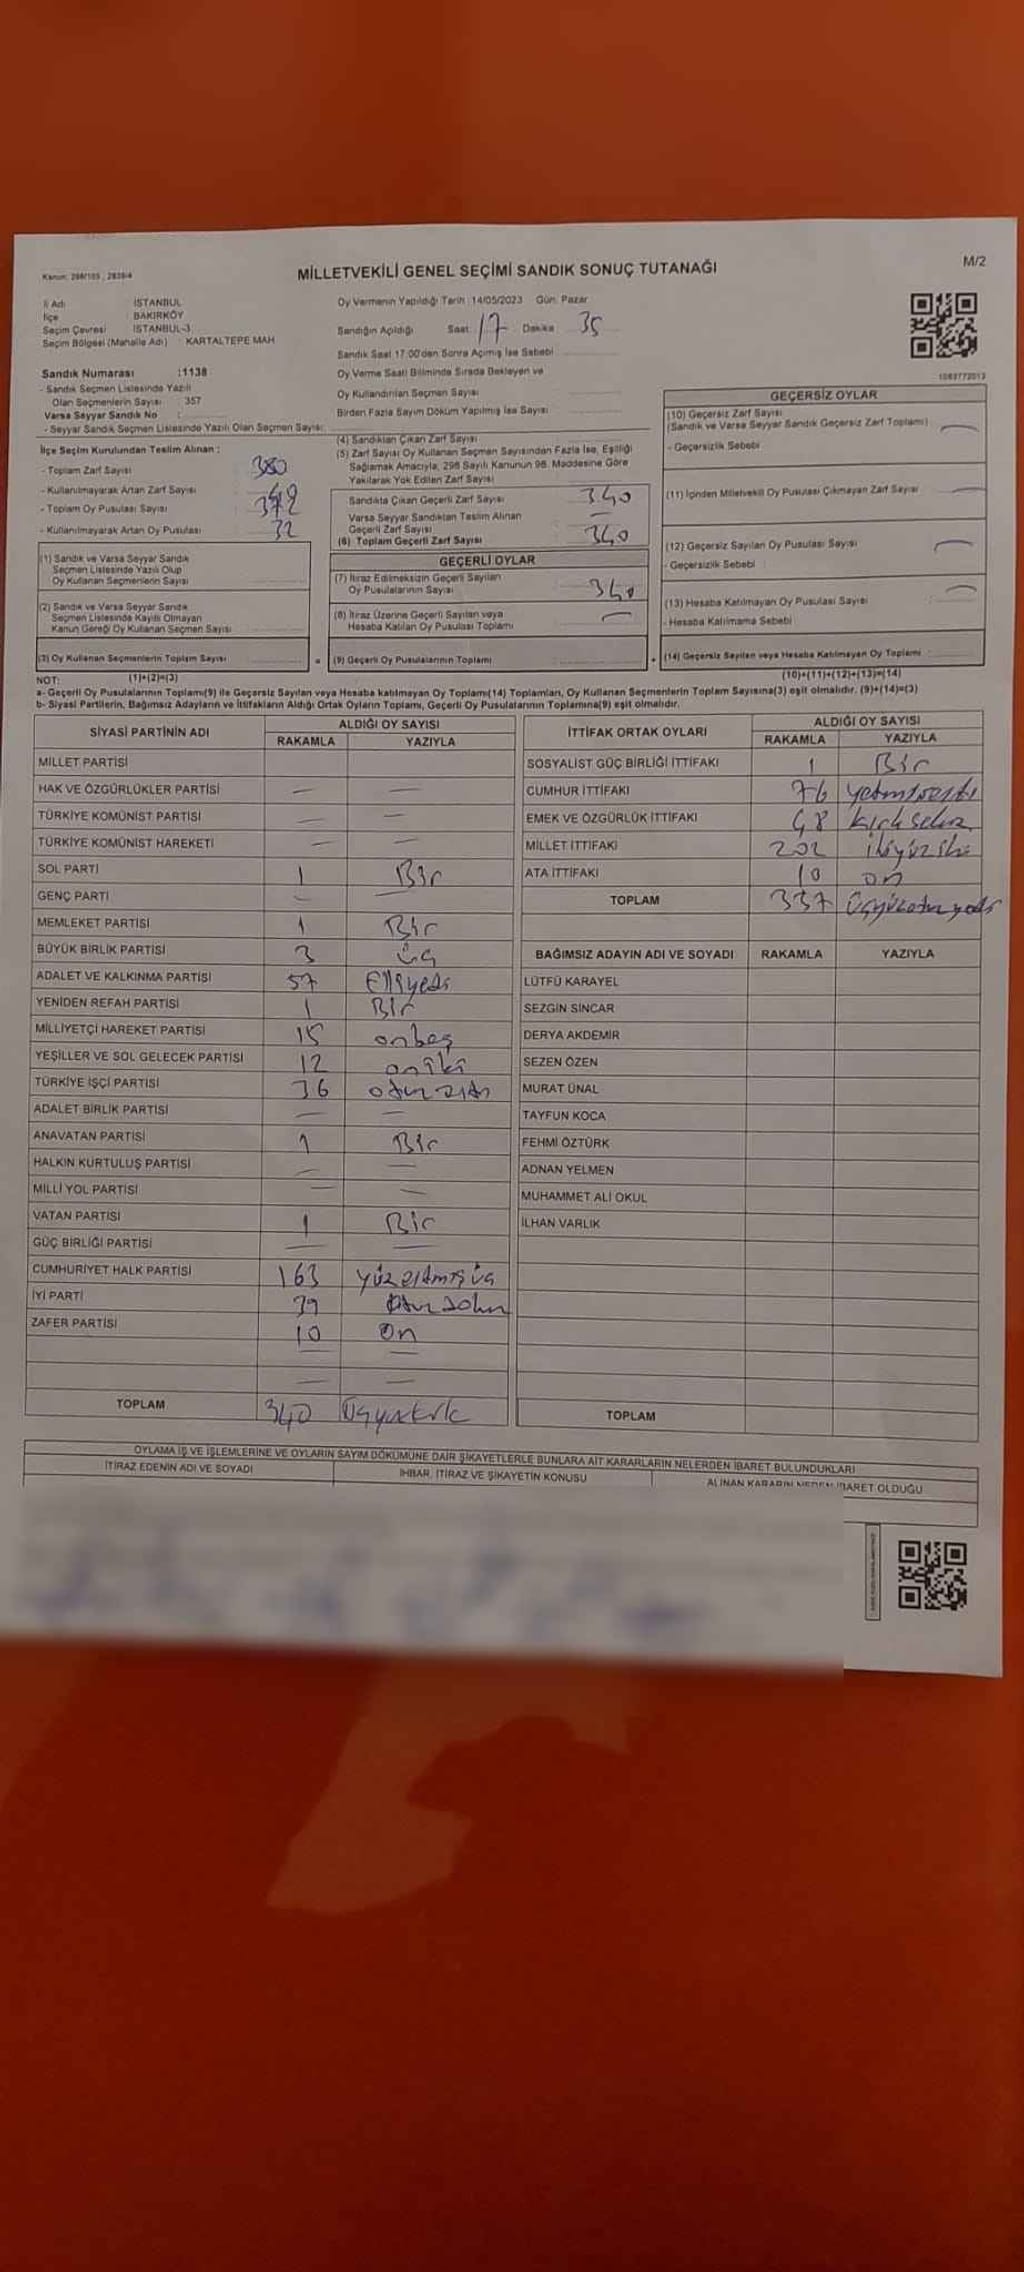 Kanun: 298/105, 2839/4
MİLLETVEKİLİ GENEL SEÇİMİ SANDIK SONUÇ TUTANAĞI
M/2
İl Adı : İSTANBUL
İlçe : BAKIRKÖY
Seçim Çevresi : İSTANBUL-3
Seçim Bölgesi (Mahalle Adı) : KARTALTEPE MAH
Oy Vermenin Yapıldığı Tarih : 14/05/2023 Gün: Pazar
Sandığın Açıldığı Saat: 17 Dakika 35
Sandık Saat 17:00'den Sonra Açımış İse Sebebi
Oy Verme Saati Bitiminde Sırada Bekleyen ve
Oy Kullandırılan Seçmen Sayısı
Birden Fazla Sayım Döküm Yapılmış İse Sayısı
Sandık Numarası :1138
- Sandık Seçmen Listesinde Yazılı
Olan Seçmenlerin Sayısı : 357
Varsa Seyyar Sandık No :
- Seyyar Sandık Seçmen Listesinde Yazılı Olan Seçmen Sayısı:
İlçe Seçim Kurulundan Teslim Alınan :
- Toplam Zarf Sayısı 380
- Kullanılmayarak Artan Zarf Sayısı
- Toplam Oy Pusulası Sayısı
- Kullanılmayarak Artan Oy Pusulası 32
(1) Sandık ve Varsa Seyyar Sandık
Seçmen Listesinde Yazılı Olup
Oy Kullanan Seçmenlerin Sayısı
(2) Sandık ve Varsa Seyyar Sandık
Seçmen Listesinde Kayıtlı Olmayan
Kanun Gereği Oy Kullanan Seçmen Sayısı
(3) Oy Kullanan Seçmenlerin Toplam Sayısı
(1)+(2)=(3)
(4) Sandıktan Çıkan Zarf Sayısı
(5) Zarf Sayısı Oy Kullanan Seçmen Sayısından Fazla İse, Eşitliği
Sağlamak Amacıyla, 298 Sayılı Kanunun 98. Maddesine Göre
Yakılarak Yok Edilen Zarf Sayısı
Sandıkta Çıkan Geçerli Zarf Sayısı 340
Varsa Seyyar Sandıktan Teslim Alınan
Geçerli Zarf Sayısı —
(6) Toplam Geçerli Zarf Sayısı 340
GEÇERLİ OYLAR
(7) İtiraz Edilmeksizin Geçerli Sayılan
Oy Pusulalarının Sayısı 340
(8) İtiraz Üzerine Geçerli Sayılan veya
Hesaba Katılan Oy Pusulası Toplamı —
= (9) Geçerli Oy Pusulalarının Toplamı
1083772013
GEÇERSİZ OYLAR
(10) Geçersiz Zarf Sayısı
(Sandık ve Varsa Seyyar Sandık Geçersiz Zarf Toplamı) —
- Geçersizlik Sebebi
(11) İçinden Milletvekili Oy Pusulası Çıkmayan Zarf Sayısı —
(12) Geçersiz Sayılan Oy Pusulası Sayısı —
- Geçersizlik Sebebi :
(13) Hesaba Katılmayan Oy Pusulası Sayısı : —
- Hesaba Katılmama Sebebi
+ (14) Geçersiz Sayılan veya Hesaba Katılmayan Oy Toplamı :
(10)+(11)+(12)+(13)=(14)
NOT:
a- Geçerli Oy Pusulalarının Toplamı(9) ile Geçersiz Sayılan veya Hesaba katılmayan Oy Toplamı(14) Toplamları, Oy Kullanan Seçmenlerin Toplam Sayısına(3) eşit olmalıdır. (9)+(14)=(3)
b- Siyasi Partilerin, Bağımsız Adayların ve İttifakların Aldığı Oyların Toplamı, Geçerli Oy Pusulalarının Toplamına(9) eşit olmalıdır.
SİYASİ PARTİNİN ADI ALDIĞI OY SAYISI
RAKAMLA YAZIYLA
MİLLET PARTİSİ
HAK VE ÖZGÜRLÜKLER PARTİSİ — —
TÜRKİYE KOMÜNİST PARTİSİ — —
TÜRKİYE KOMÜNİST HAREKETİ — —
SOL PARTİ 1 Bir
GENÇ PARTİ — —
MEMLEKET PARTİSİ 1 Bir
BÜYÜK BİRLİK PARTİSİ 3 üç
ADALET VE KALKINMA PARTİSİ 57 Elliyedi
YENİDEN REFAH PARTİSİ 1 Bir
MİLLİYETÇİ HAREKET PARTİSİ 15 onbeş
YEŞİLLER VE SOL GELECEK PARTİSİ 12 oniki
TÜRKİYE İŞÇİ PARTİSİ 36 otuzaltı
ADALET BİRLİK PARTİSİ — —
ANAVATAN PARTİSİ 1 Bir
HALKIN KURTULUŞ PARTİSİ — —
MİLLİ YOL PARTİSİ — —
VATAN PARTİSİ 1 Bir
GÜÇ BİRLİĞİ PARTİSİ — —
CUMHURİYET HALK PARTİSİ 163 yüzaltmışüç
İYİ PARTİ 39 otuzdokuz
ZAFER PARTİSİ 10 on
— —
— —
TOPLAM 340 üçyüzkırk
İTTİFAK ORTAK OYLARI ALDIĞI OY SAYISI
RAKAMLA YAZIYLA
SOSYALİST GÜÇ BİRLİĞİ İTTİFAKI 1 Bir
CUMHUR İTTİFAKI 76 yetmişaltı
EMEK VE ÖZGÜRLÜK İTTİFAKI 48 kırksekiz
MİLLET İTTİFAKI 202 ikiyüziki
ATA İTTİFAKI 10 on
TOPLAM 337 üçyüzotuzyedi
BAĞIMSIZ ADAYIN ADI VE SOYADI RAKAMLA YAZIYLA
LÜTFÜ KARAYEL
SEZGİN SİNCAR
DERYA AKDEMİR
SEZEN ÖZEN
MURAT ÜNAL
TAYFUN KOCA
FEHMİ ÖZTÜRK
ADNAN YELMEN
MUHAMMET ALİ OKUL
İLHAN VARLIK
TOPLAM
OYLAMA İŞ VE İŞLEMLERİNE VE OYLARIN SAYIM DÖKÜMÜNE DAİR ŞİKAYETLERLE BUNLARA AİT KARARLARIN NELERDEN İBARET BULUNDUKLARI
İTİRAZ EDENİN ADI VE SOYADI İHBAR, İTİRAZ VE ŞİKAYETİN KONUSU ALINAN KARARIN NEDEN İBARET OLDUĞU